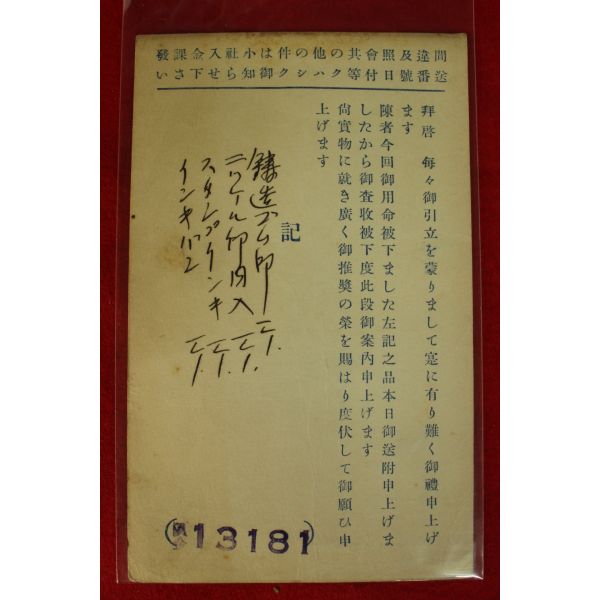 間違及照會其の他の件は小社入金課發
送番號日付等クハシク御知らせ下さい
拜啓 每々御引立を蒙りまして寔に有り難く御禮申上げ
ます
陳者今回御用命被下ました左記之品本日御送附申上げま
したから御査收被下度此段御案內申上げます
尙實物に就き廣く御推奬の榮を賜はり度伏して御願ひ申
上げます
記
鋳造ゴム印
ニッケル印肉入
スタンプインキ
インキ
13181